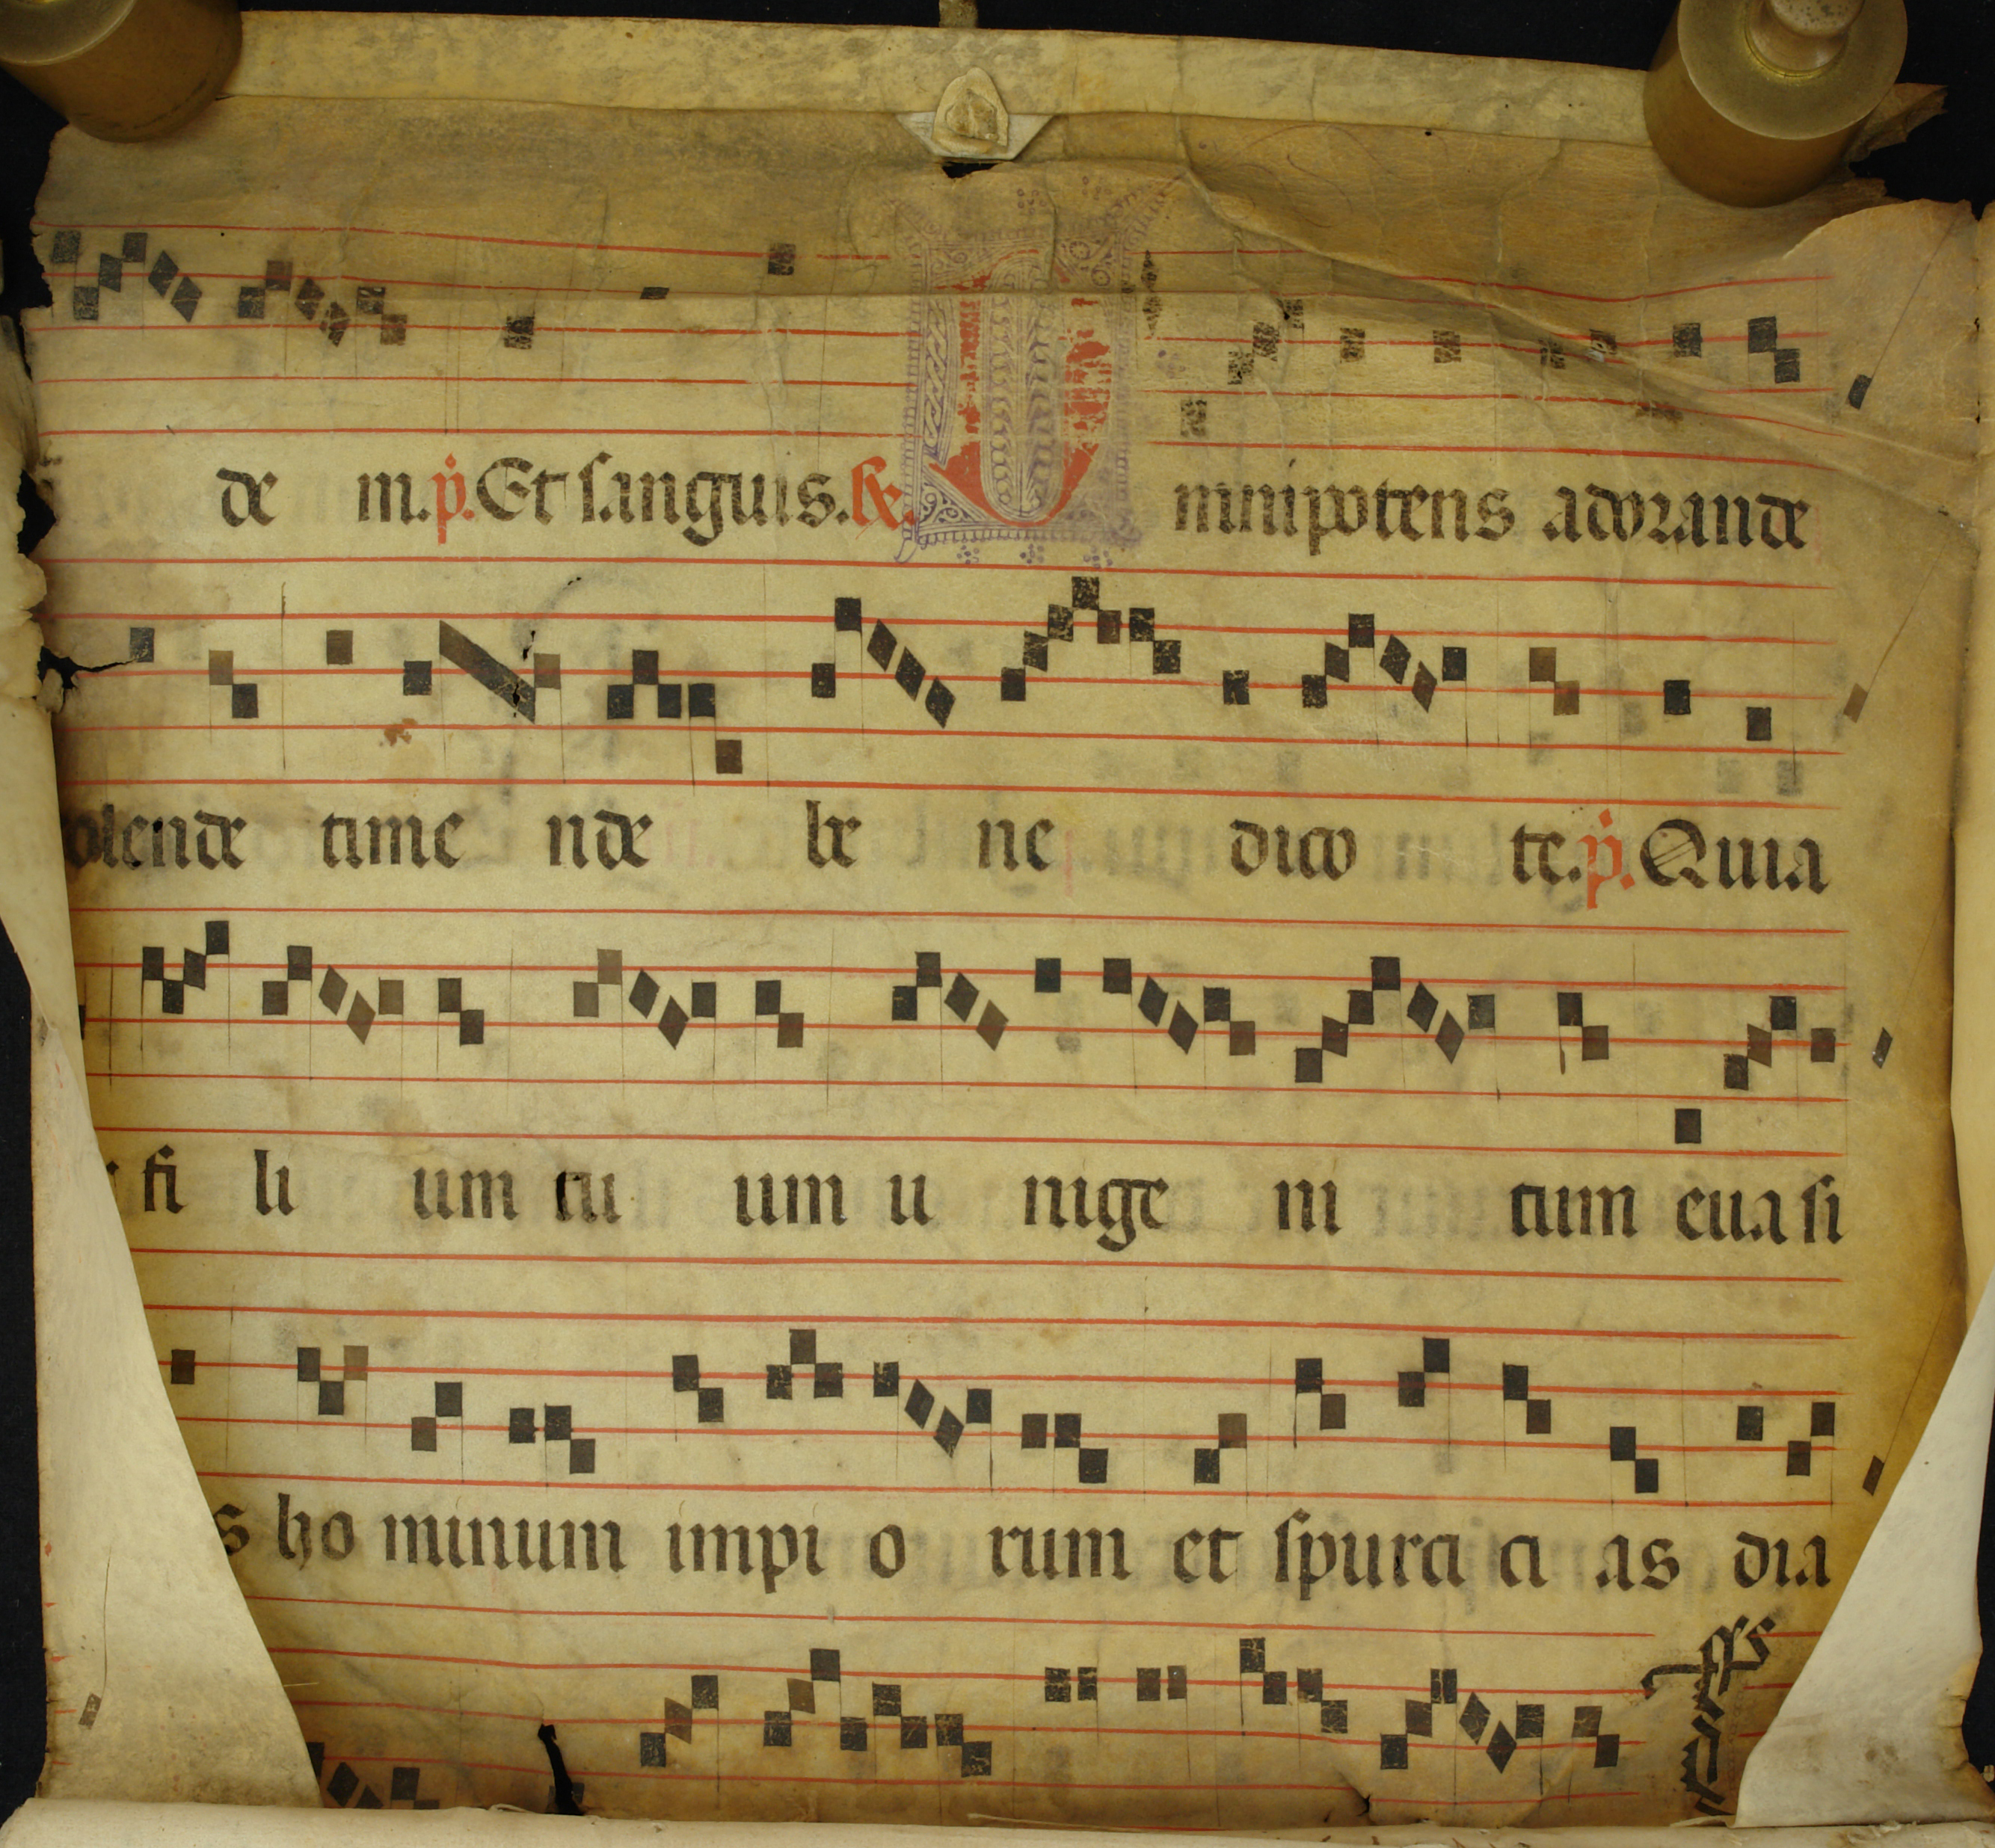 de m.p.Et sanguis.R. Omnipotens adorande
colende time nde be ne dico te.p.Quia
fi li um tu um u nige ni tum euasi
s ho minum impi o rum et spurci ci as dia